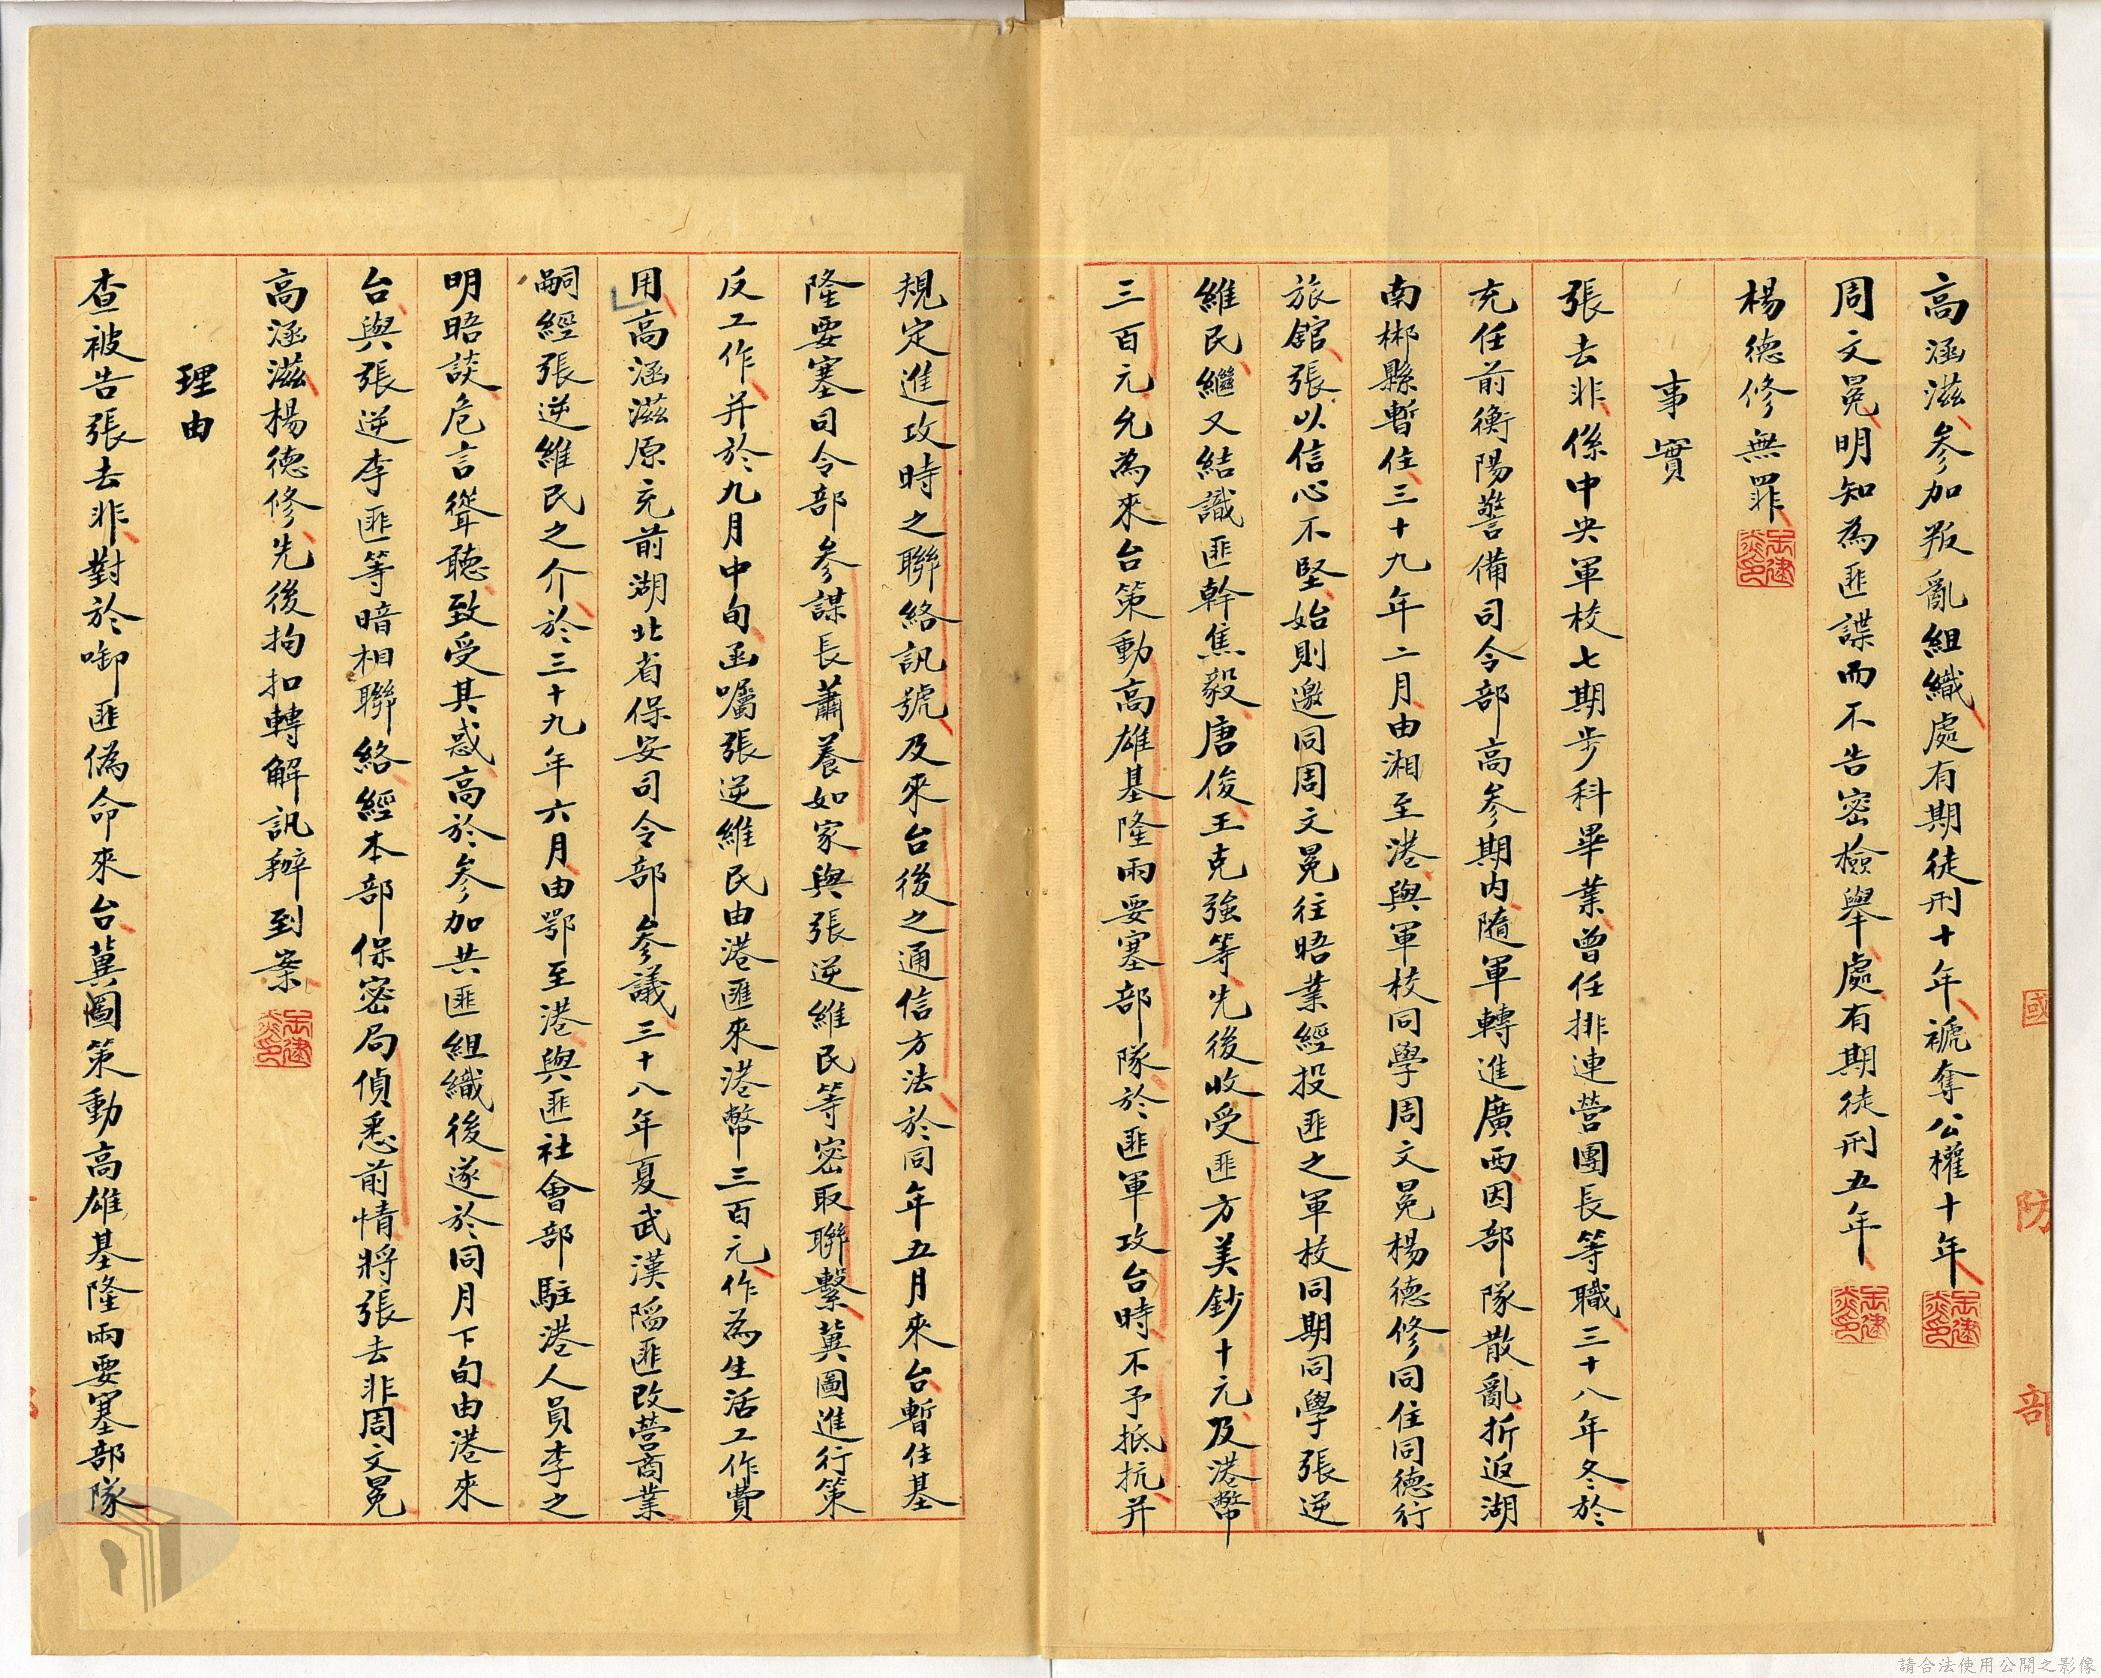 高涵滋參加叛亂組織處有期徒刑十年褫奪公權十年
周文冕明知為匪諜而不告密檢舉處有期徒刑五年
楊德修無罪
事實
張去非係中央軍校七期步科畢業曾任排連營團長等職三十八年冬於
充任前衡陽警備司令部高參期內隨軍轉進廣西因部隊散亂折返湖
南郴縣暫住三十九年二月由湘至港與軍校同學周文冕楊德修同住同德行
旅館張以信心不堅始則邀同周文冕往晤業經投匪之軍校同期同學張逆
維民繼又結識匪幹焦毅唐俊王克強等先後收受匪方美鈔十元及港幣
三百元允為來台策動高雄基隆兩要塞部隊於匪軍攻台時不予抵抗并
規定進攻時之聯絡訊號及來台後之通信方法於同年五月來台暫住基
隆要塞司令部參謀長蕭養如家與張逆維民等密取聯繫冀圖進行策
反工作并於九月中旬函囑張逆維民由港匯來港幣三百元作為生活工作費
用高涵滋原充前湖北省保安司令部參議三十八年夏武漢陷匪改營商業
嗣經張逆維民之介於三十九年六月由鄂至港與匪社會部駐港人員李之
明晤談危言聳聽致受其惑高於參加共匪組織後遂於同月下旬由港來
台與張逆李匪等暗相聯絡經本部保密局偵悉前情將張去非周文冕
高涵滋楊德修先後拘扣轉解訊辦到案
理由
查被告張去非對於啣匪偽命來台冀圖策動高雄基隆兩要塞部隊
國防部
請合法使用公開之影像